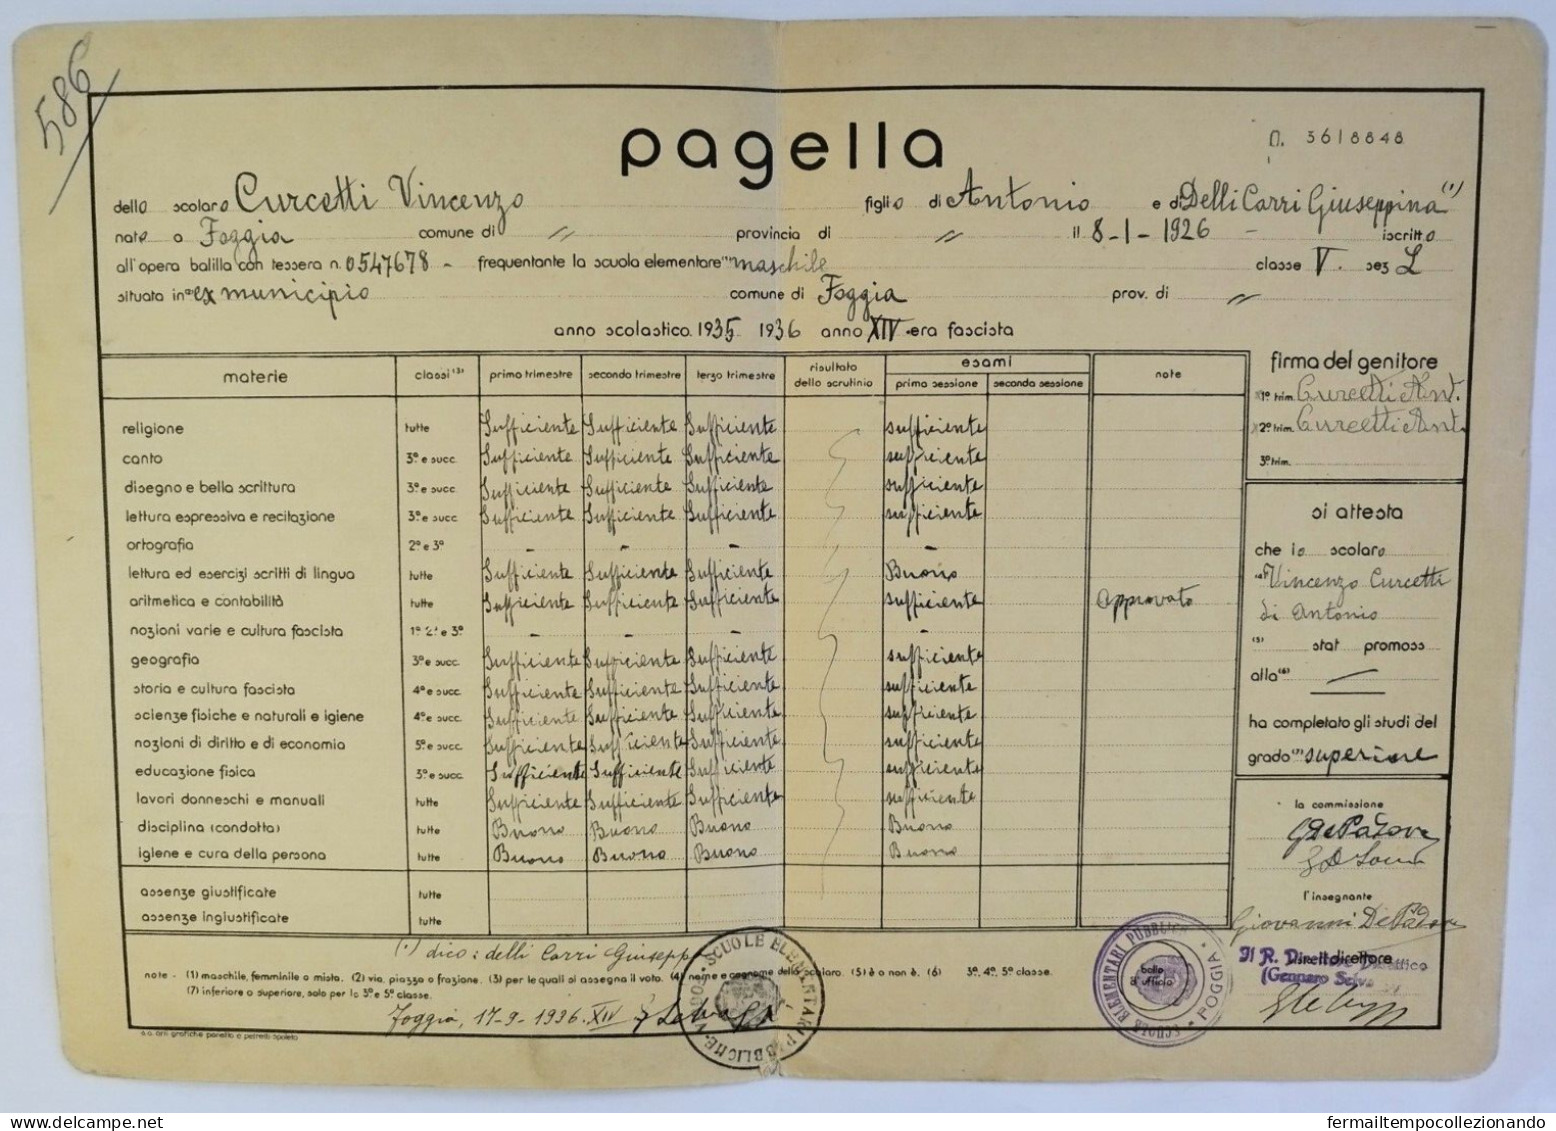 586
pagella
n. 3618848
dello scolaro Curcetti Vincenzo figlio di Antonio e di Delli Carri Giuseppina (1)
nato a Foggia comune di " provincia di " il 8-1-1926 - iscritto
all'opera balilla con tessera n. 0547678 - frequentante la scuola elementare (1) maschile classe V. sez L
situata in (2) ex municipio comune di Foggia prov. di "
anno scolastico 1935 1936 anno XIV era fascista
materie classi (3) primo trimestre secondo trimestre terzo trimestre risultato dello scrutinio esami prima sessione seconda sessione note
religione tutte Sufficiente Sufficiente Sufficiente sufficiente
canto 3ª e succ. Sufficiente Sufficiente Sufficiente sufficiente
disegno e bella scrittura 3ª e succ. Sufficiente Sufficiente Sufficiente sufficiente
lettura espressiva e recitazione 3ª e succ. Sufficiente Sufficiente Sufficiente sufficiente
ortografia 2ª e 3ª - - - -
lettura ed esercizi scritti di lingua tutte Sufficiente Sufficiente Sufficiente Buono
aritmetica e contabilità tutte Sufficiente Sufficiente Sufficiente sufficiente approvato
nozioni varie e cultura fascista 1ª 2ª e 3ª - - -
geografia 3ª e succ. Sufficiente Sufficiente Sufficiente sufficiente
storia e cultura fascista 4ª e succ. Sufficiente Sufficiente Sufficiente sufficiente
scienze fisiche e naturali e igiene 4ª e succ. Sufficiente Sufficiente Sufficiente sufficiente
nozioni di diritto e di economia 5ª e succ. Sufficiente Sufficiente Sufficiente sufficiente
educazione fisica 3ª e succ. Sufficiente Sufficiente Sufficiente sufficiente
lavori donneschi e manuali tutte Sufficiente Sufficiente Sufficiente sufficiente
disciplina (condotta) tutte Buono Buono Buono Buono
igiene e cura della persona tutte Buono Buono Buono Buono
assenze giustificate tutte
assenze ingiustificate tutte
firma del genitore
1º trim. Curcetti Ant.
2º trim. Curcetti Ant.
3º trim.
si attesta
che lo scolaro
(4) Vincenzo Curcetti
di Antonio
(5) stat promoss
alla (6) —
ha completato gli studi del
grado (7) superiore
la commissione
G De Padova
l'insegnante
Giovanni De Padova
Il R. Direttore Didattico
il direttore
(Gennaro
(1) dico: delli Carri Giuseppa
note - (1) maschile, femminile o mista. (2) via, piazza o frazione. (3) per le quali si assegna il voto. (4) nome e cognome dello scolaro. (5) è o non è. (6) 3ª, 4ª, 5ª classe.
(7) inferiore o superiore, solo per la 3ª e 5ª classe.
Foggia, 17-9-1936. XIV
SCUOLE ELEMENTARI PUBBLICHE
SCUOLE ELEMENTARI PUBBLICHE · FOGGIA ·
bollo d'ufficio
s.a. arti grafiche panetto e petrelli spoleto
fermailtempocollezionando